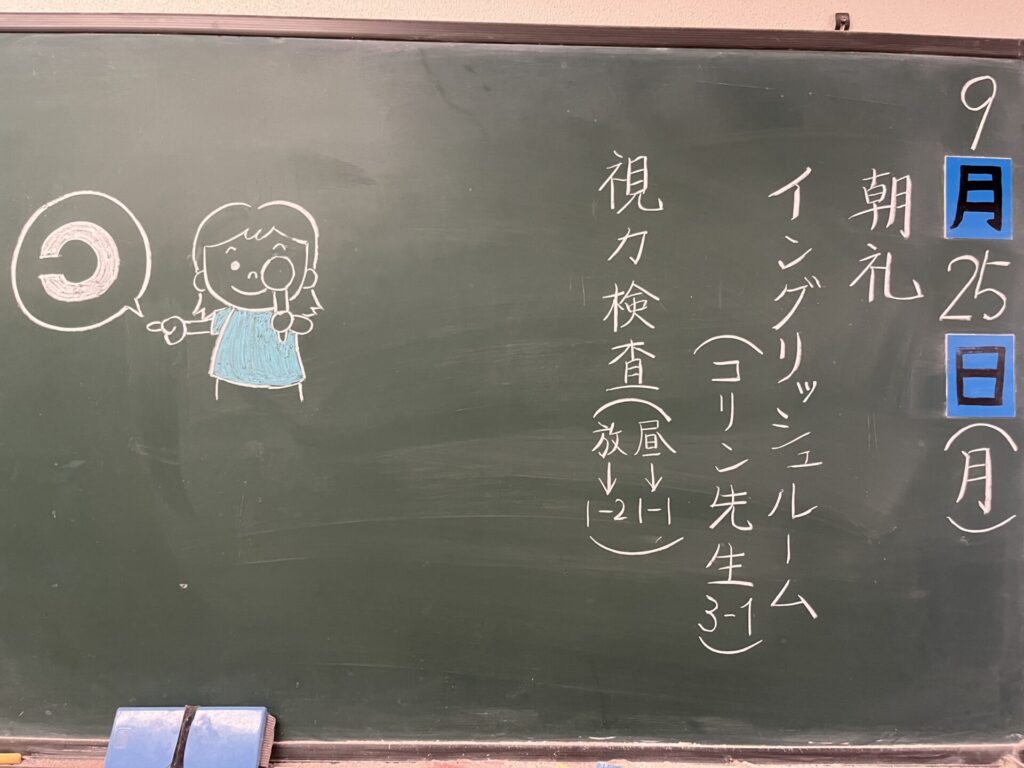 9月25日(月)
朝礼
イングリッシュルーム
(コリン先生3-1)
視力検査(昼→1-1
放→1-2)